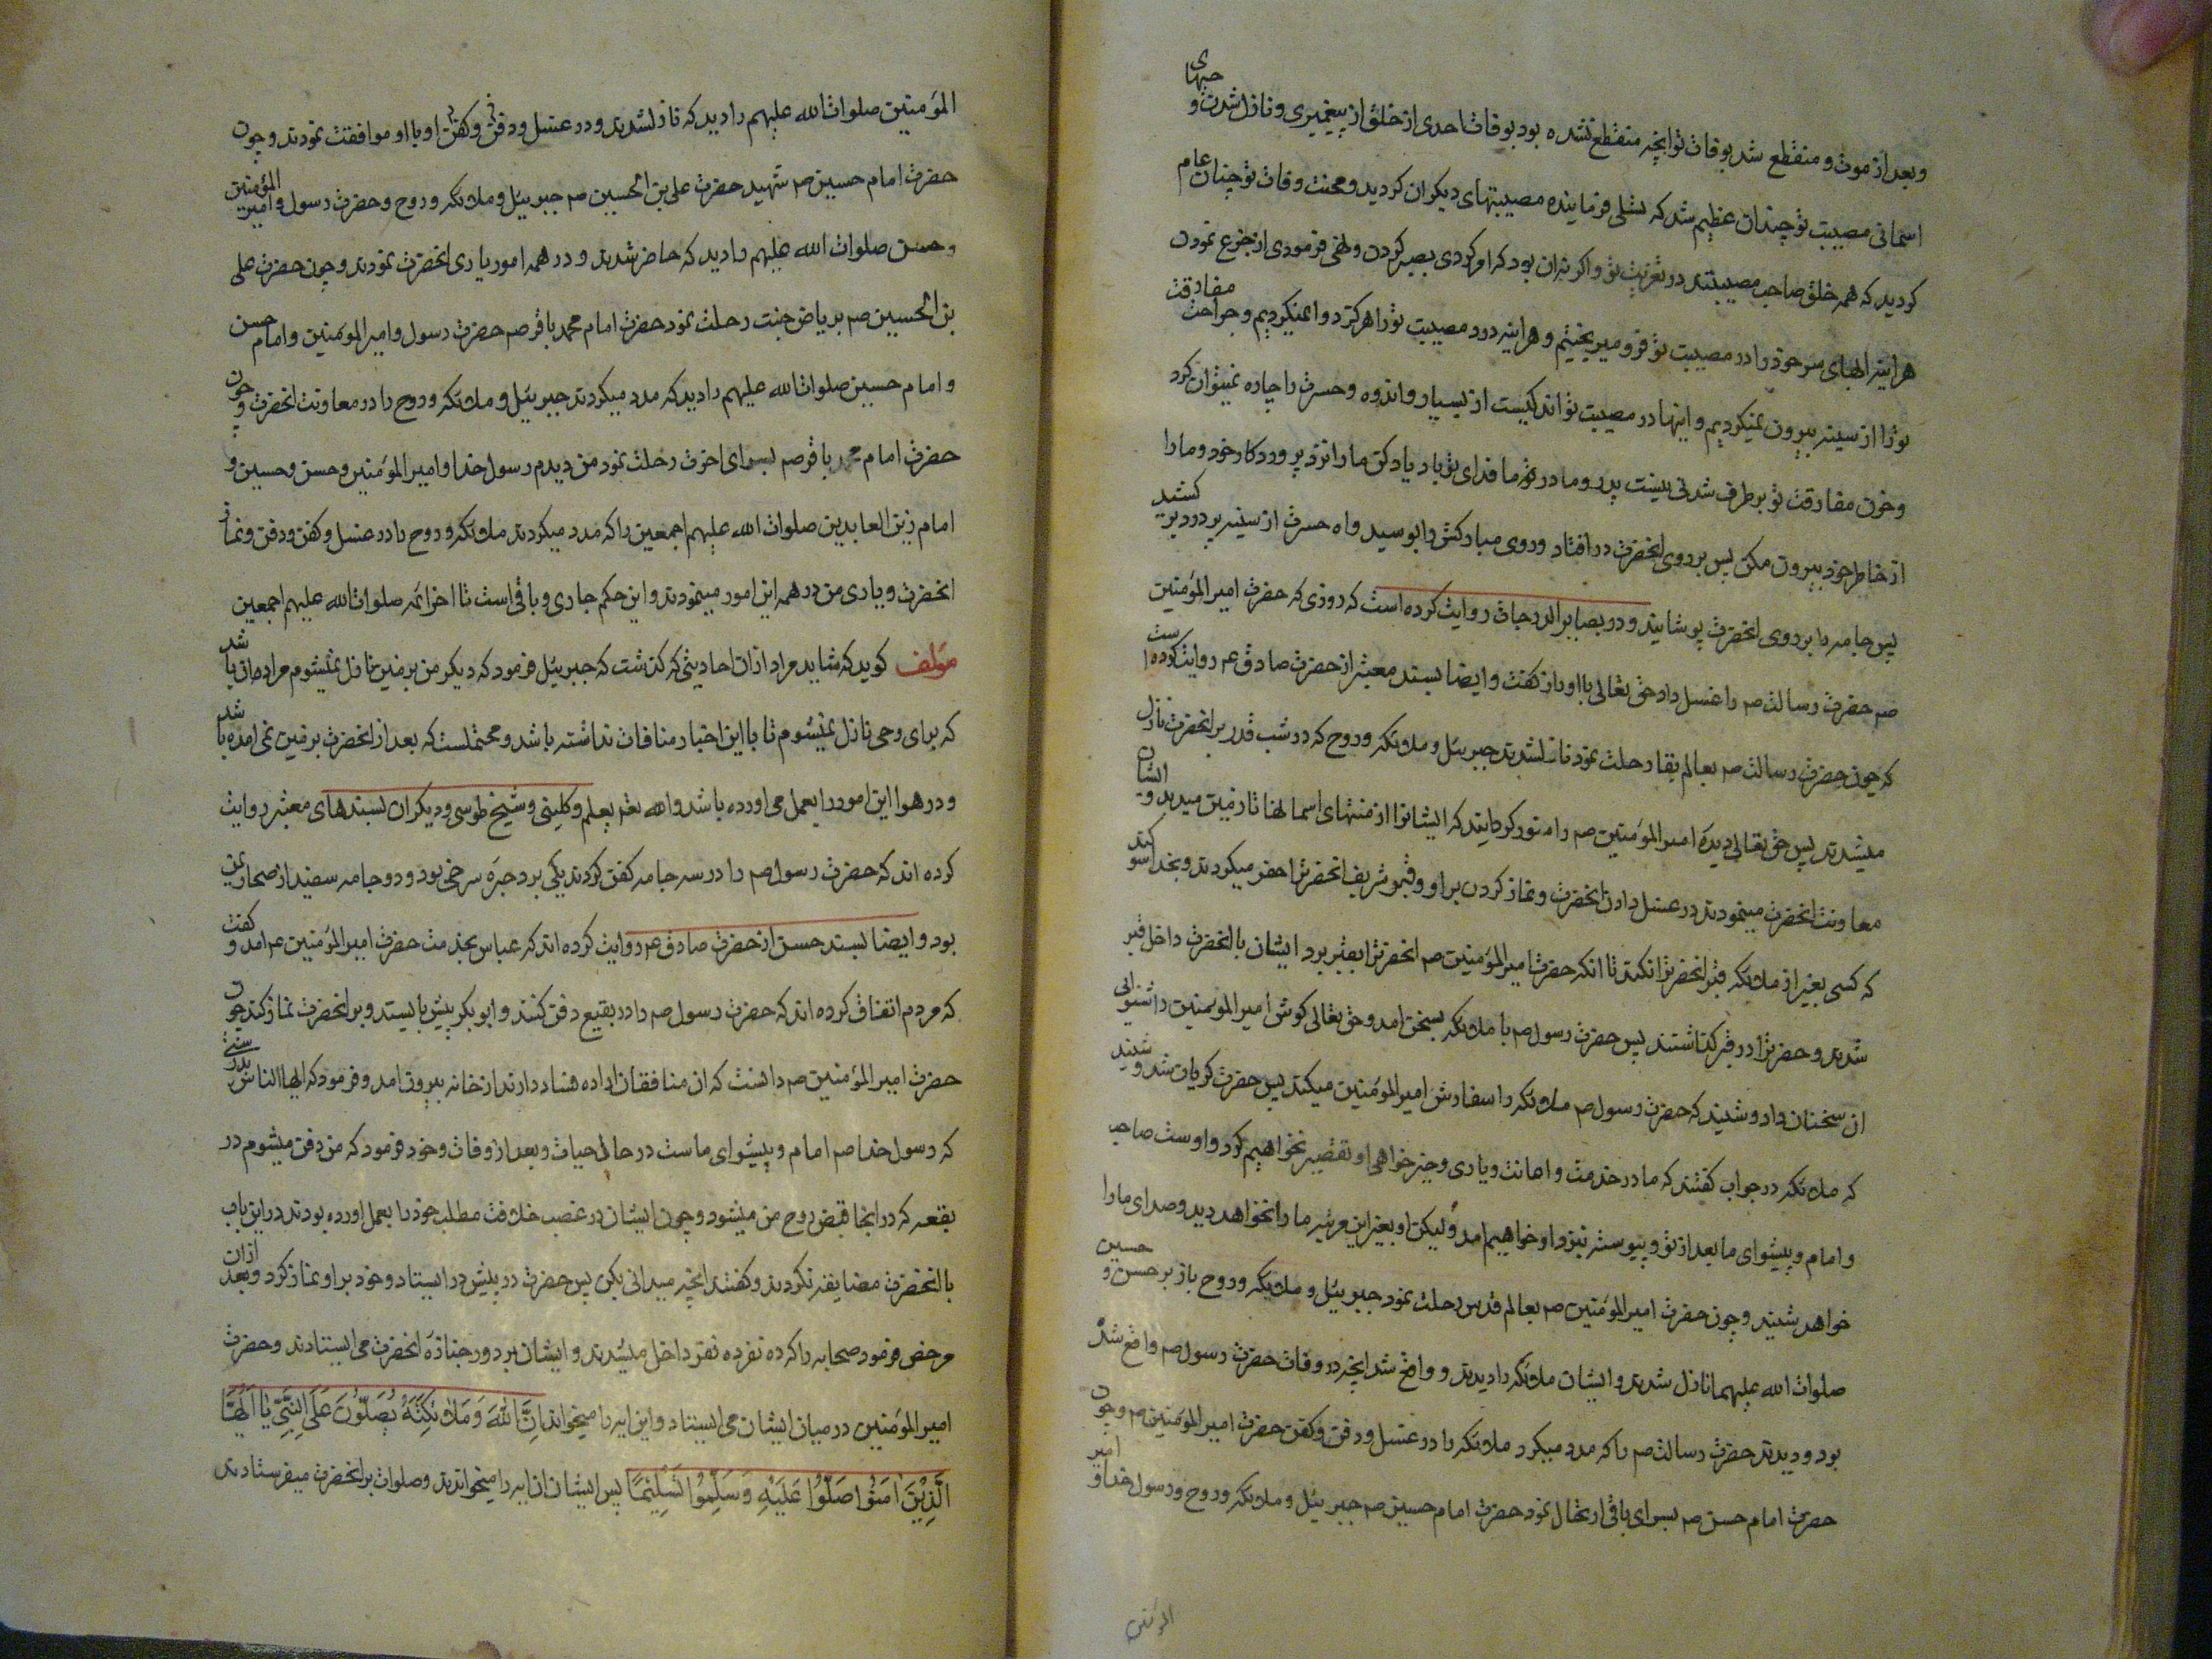 و بعد از موت و منقطع شد بوفات تو آنچه منقطع نشده بود بوفات احدی از خلق از پیغمبری و نازل شدن وحیهای
آسمانی مصیبت تو چندان عظیم شد که تسلی فرماینده مصیبتهای دیگران گردید و محنت وفات تو چنان عام
گردید که همه خلق صاحب مصیبتند در تعزیت تو و اگر نه آن بود که امر کردی بصبر کردن و نهی فرمودی از جزع نمودن
هر اینه آبهای سر خود را در مصیبت تو فرو میریختیم و هر اینه درد مصیبت ترا هرگز دوا نمیکردیم و جراحت مفارقت
تو را از سینه بیرون نمیکردیم و اینها در مصیبت تو اندکیست از بسیار و اندوه و حسرت را چاره نمیتوان کرد
و حزن مفارقت تو برطرف شدنی نیست پدر و مادرم فدای تو باد یاد کن ما را نزد پروردگار خود و ما را
از خاطر خود بیرون مکن پس بر روی انحضرت در افتاد و روی مبارکش را بوسید و اه حسرت از سینه پر درد بر کشید
پس جامه را بر روی انحضرت پوشانید و در بصایر الدرجات روایت کرده است که روزی که حضرت امیرالمؤمنین
صم حضرت رسالت صم را غسل داد حق تعالی با او راز گفت و ایضا بسند معتبر از حضرت صادق عم روایت کرده است
که چون حضرت رسالت صم بعالم بقا رحلت نمود نازلشدند جبرییل و ملائکه و روح که در شب قدر بر انحضرت نازل
میشدند پس حق تعالی دیده امیرالمؤمنین صم را منور گردانید که ایشانرا از منتهای اسمانها تا زمین میدید و ایشان
معاونت انحضرت مینمودند در غسل دادن انحضرت و نماز کردن بر او و قبر شریف انحضرترا حفر میکردند و بخدا سوگند
که کسی بغیر از ملائکه قبر انحضرترا نکند تا انکه حضرت امیرالمؤمنین صم انحضرترا بقبر برد ایشان با انحضرت داخل قبر
شدند و حضرترا در قبر گذاشتند پس حضرت رسول صم با ملائکه بسخن امد و حق تعالی گوش امیرالمومنین را شنوایی
ان سخنان داد و شنید که حضرت رسول صم ملائکه را سفارش امیرالمؤمنین میکند پس حضرت گریان شد و شنید
که ملائکه در جواب گفتند که ما در خدمت و اعانت و یاری و خیر خواهی او تقصیر نخواهیم کرد و اوست صاحب
و امام و پیشوای ما بعد از تو و پیوسته نزد او خواهیم امد و لیکن او بغیر این مرتبه ما را نخواهد دید و صدای ما را
خواهد شنید و چون حضرت امیرالمؤمنین صم بعالم قدس رحلت نمود جبرییل و ملائکه و روح باز بر حسن و حسین
صلوات الله علیهما نازل شدند و ایشان ملائکه را دیدند و واقع شد آنچه در وفات حضرت رسول صم واقع شده
بود و دیدند حضرت رسالت صم را که مدد میکرد ملائکه را در غسل و دفن و کفن حضرت امیرالمؤمنین صم و چون
حضرت امام حسن صم بسرای باقی ارتحال نمود حضرت امام حسین صم جبرییل و ملائکه و روح و رسول خدا و امیر
المؤمنین
المؤمنین صلوات الله علیهم را دید که نازلشدند و در غسل و دفن و کفن او با او موافقت نمودند و چون
حضرت امام حسین صم شهید حضرت علی بن الحسین صم جبرییل و ملائکه و روح و حضرت رسول و امیرالمؤمنین
و حسن صلوات الله علیهم را دید که حاضر شدند و در همه امور یاری انحضرت نمودند و چون حضرت علی
بن الحسین صم بریاض جنت رحلت نمود حضرت امام محمد باقر صم حضرت رسول و امیرالمومنین و امام حسن
و امام حسین صلوات الله علیهم را دید که مدد میکردند جبرییل و ملائکه و روح را در معاونت انحضرت و چون
حضرت امام محمد باقر صم بسرای اخرت رحلت نمود من دیدم رسول خدا و امیرالمؤمنین و حسن و حسین و
امام زین العابدین صلوات الله علیهم اجمعین را که مدد میکردند ملائکه و روح را در غسل و کفن و دفن و نماز
انحضرت و یاری من در همه این امور مینمودند و این حکم جاری و باقی است تا اخر ائمه صلوات الله علیهم اجمعین
مؤلف گوید که شاید مراد از ان احادیثی که گذشت که جبرییل فرمود که دیگر من بزمین نازل نمیشوم مراد ان باشد
که برای وحی نازل نمیشوم تا با این اخبار منافات نداشته باشد و محتملست که بعد از انحضرت بزمین نمی امده باشد
و در هوا این امور را بعمل می اورده باشد و الله تعم یعلم و کلینی و شیخ طوسی و دیگران بسندهای معتبر روایت
کرده اند که حضرت رسول صم را در سه جامه کفن کردند یکی برد حبره سرخی بود و دو جامه سفید از صحار یمن
بود و ایضا بسند حسن از حضرت صادق عم روایت کرده اند که عباس بخدمت حضرت امیرالمؤمنین عم امد و گفت
که مردم اتفاق کرده اند که حضرت رسول صم را در بقیع دفن کنند و ابوبکر پیش بایستد و بر انحضرت نماز کند چون
حضرت امیرالمؤمنین صم دانست که ان منافقان اراده فساد دارند از خانه بیرون امد و فرمود که ایها الناس بدرستی
که رسول خدا صم امام و پیشوای ماست در حال حیات و بعد از وفات و خود فرمود که من دفن میشوم در
بقعه که در انجا قبض روح من میشود و چون ایشان در غصب خلافت مطلب خود را بعمل اورده بودند در این باب
با انحضرت مضایقه نکردند و گفتند انچه میدانی بکن پس حضرت در پیش در ایستاد و خود بر او نماز کرد و بعد از ان
مرخص فرمود صحابه را که ده نفر ده نفر داخل میشدند و ایشان بر دور جنازه انحضرت می ایستادند و حضرت
امیرالمؤمنین در میان ایشان می ایستاد و این ایه را میخواند اِنَّ اللّٰهَ وَمَلٰئِکَتَهُ یُصَلُّونَ عَلَی النَّبِیِّ یٰا اَیُّهَا
الَّذِیْنَ اٰمَنُوا صَلُّوْا عَلَیْهِ وَسَلِّمُوْا تَسْلِیْمًا پس ایشان ان ایه را میخواندند و صلوات بر انحضرت میفرستادند